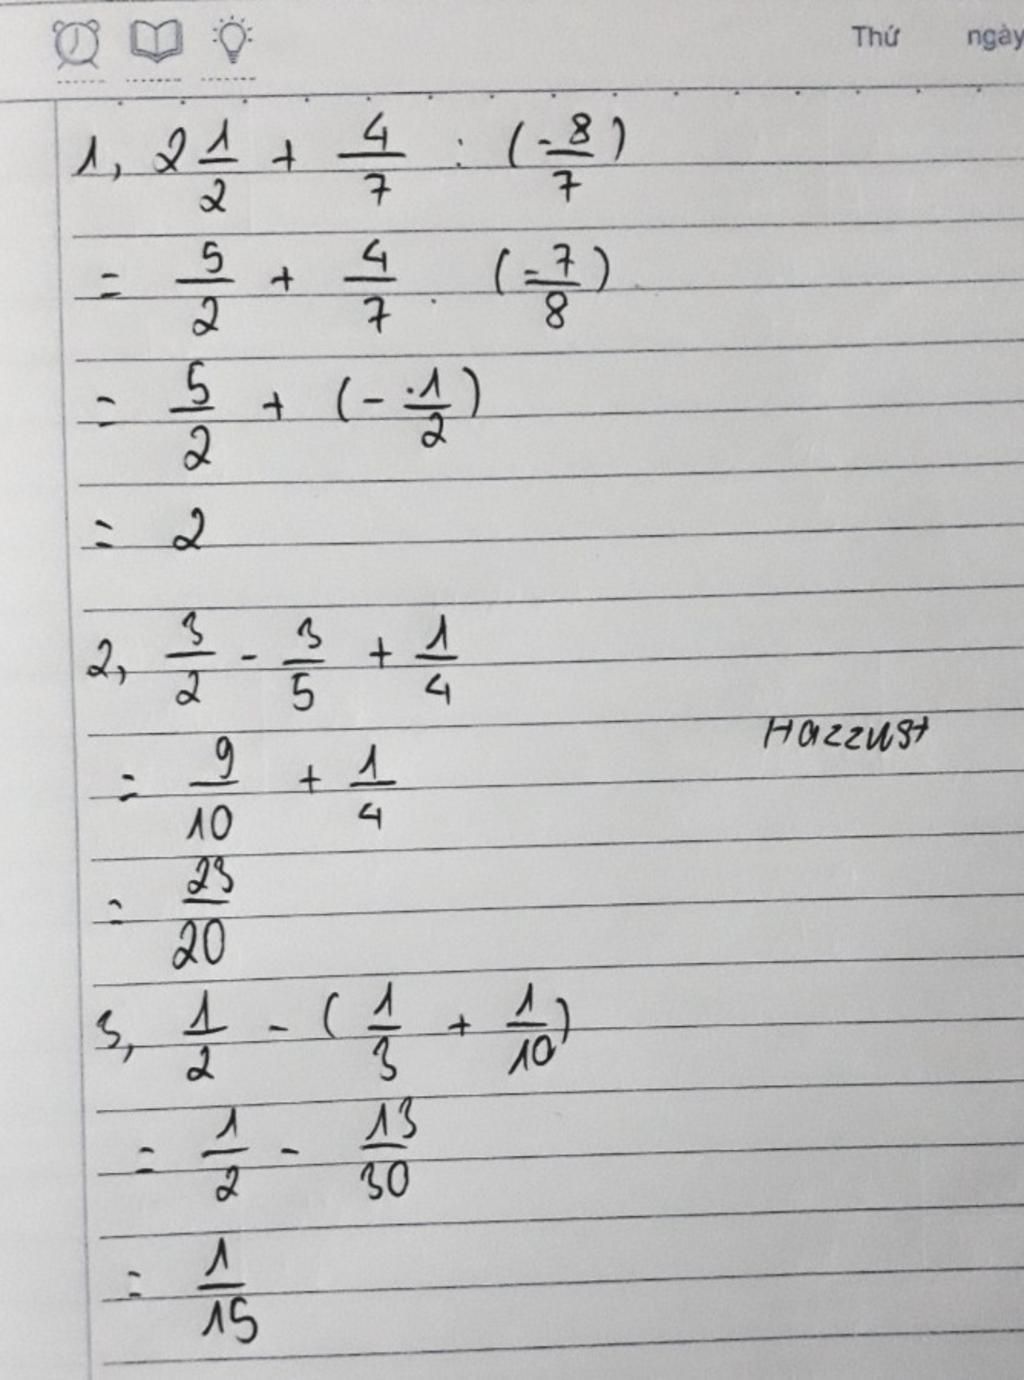 Thứ ngày
1, 2 1/2 + 4/7 : (-8/7)
= 5/2 + 4/7 . (-7/8)
= 5/2 + (-1/2)
= 2
2, 3/2 - 3/5 + 1/4
Hazzust
= 9/10 + 1/4
= 23/20
3, 1/2 - (1/3 + 1/10)
= 1/2 - 13/30
= 1/15